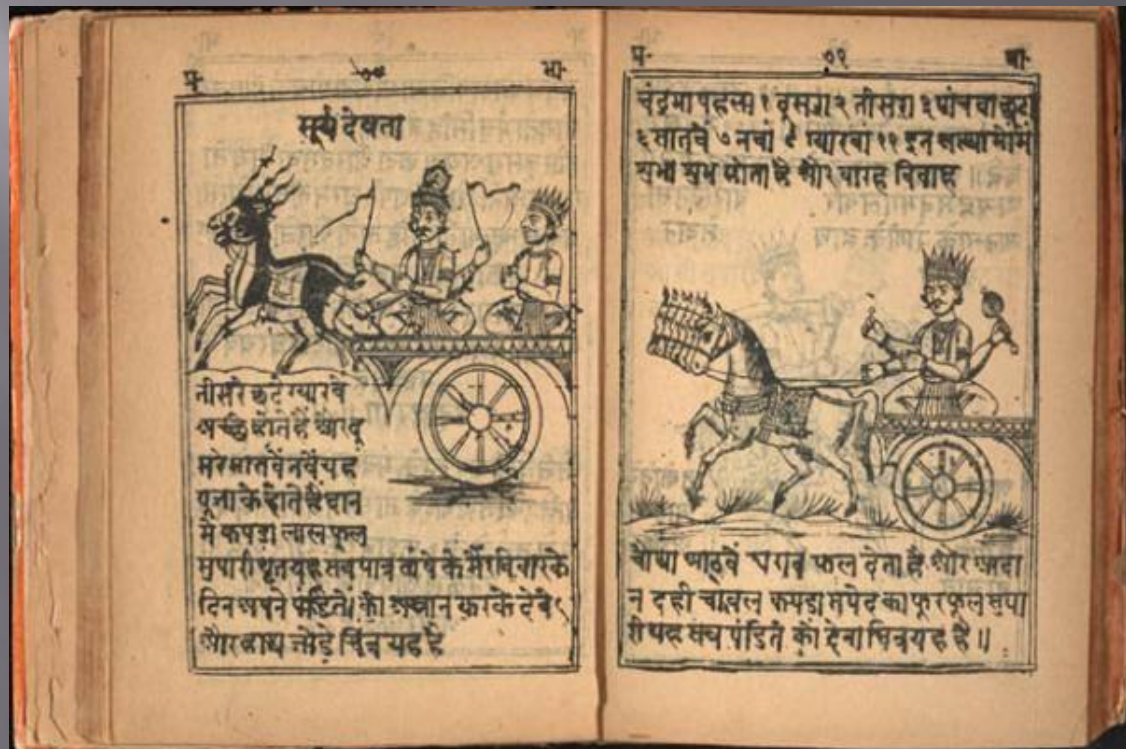 प॰ ७० भा॰
सूर्य देवता
तीसरे छटे ग्यारवे
अच्छे होते हैं और दू
सरे सातवें नवें यह
पूजा के होते है दान
में कपडा लाल फूल
सुपारी घृत यह सब पात्र तांबे के में रविवार के
दिन अपने पंडितों को स्नान करके देवे
और हाथ जोडे चित्र यह है
प॰ ७१ भा॰
चंद्रमा पहला १ दूसरा २ तीसरा ३ पांचवा छटा
६ सातवें ७ नवां ९ ग्यारवां ११ इन
सुभ होता है और बारह विवाह
चौथा आठवें षराब फल देता है और
न दही चावल कपडा सपेद का फूल सुपा
री यह सब पंडित को देना चित्र यह है॥